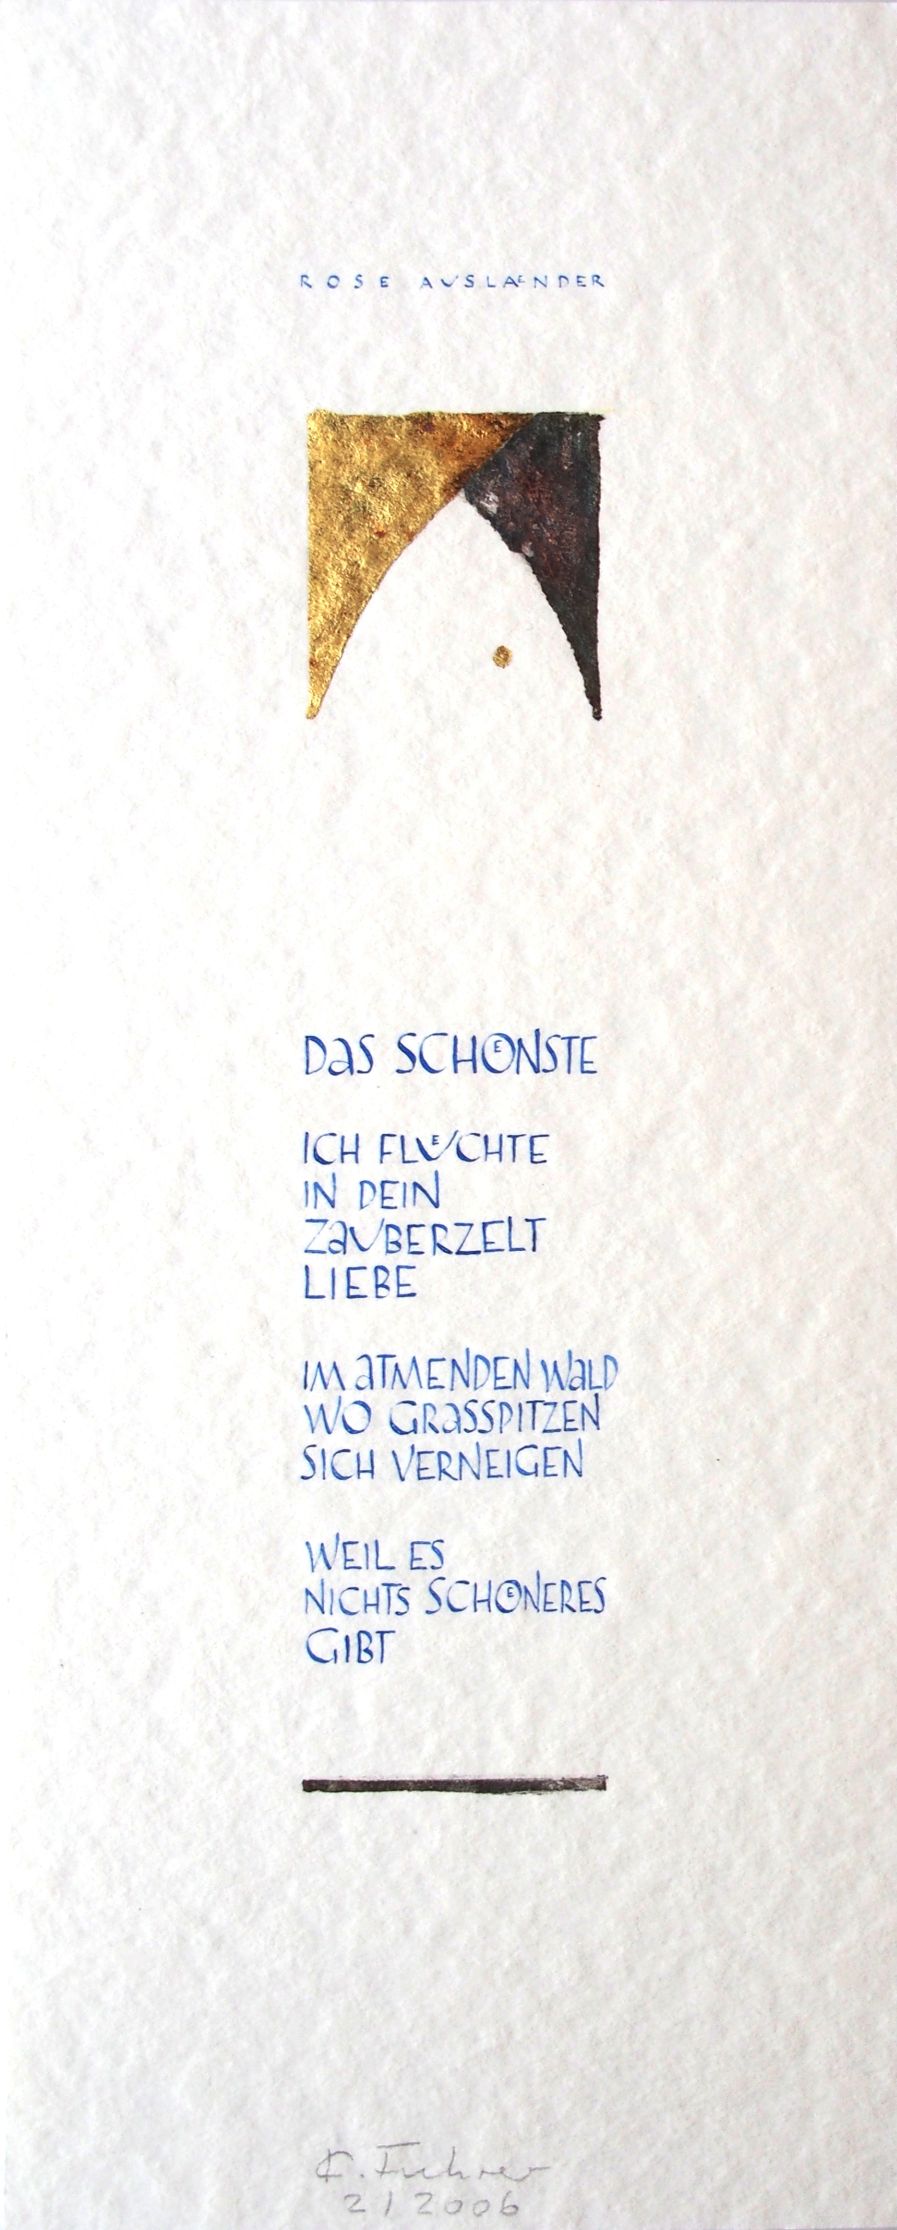 ROSE AUSLAENDER
DaS SCHOENSTE
ICH FLUECHTE
IN DEIN
ZaUBERZELT
LIEBE
IM aTMENDEN WaLD
WO GRaSSPITZEN
SICH VERNEIGEN
WEIL ES
NICHTS SCHOENERES
GIBT
K. Fuhrer
2/2006